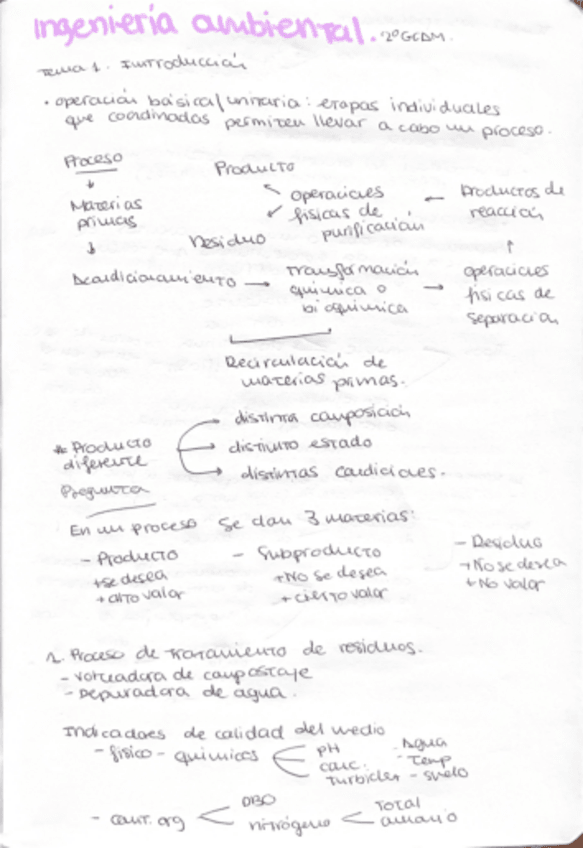 Ingeniería ambiental. 2º GCAM.
Tema 1. Introducción
· operación básica/unitaria: etapas individuales
que coordinadas permiten llevar a cabo un proceso.
Proceso
Producto
Materias
primas
operaciones
físicas de
purificación
Productos de
reacción
Residuo
Acondicionamiento
transformación
química o
bioquímica
operaciones
físicas de
separación
Recirculación de
materias primas.
* Producto
diferente
distinta composición
distinto estado
distintas condiciones.
Pregunta
En un proceso se dan 3 materias:
- Producto
+ se desea
+ alto valor
- Subproducto
+ No se desea
+ cierto valor
- Residuo
+ No se desea
+ No valor
1. Proceso de tratamiento de residuos.
- volteadora de compostaje
- Depuradora de agua.
Indicadores de calidad del medio
- físico - químicos
pH
conc.
turbidez
- Agua
- Temp
- suelo
- cont. org
DBO
nitrógeno
Total
amonio